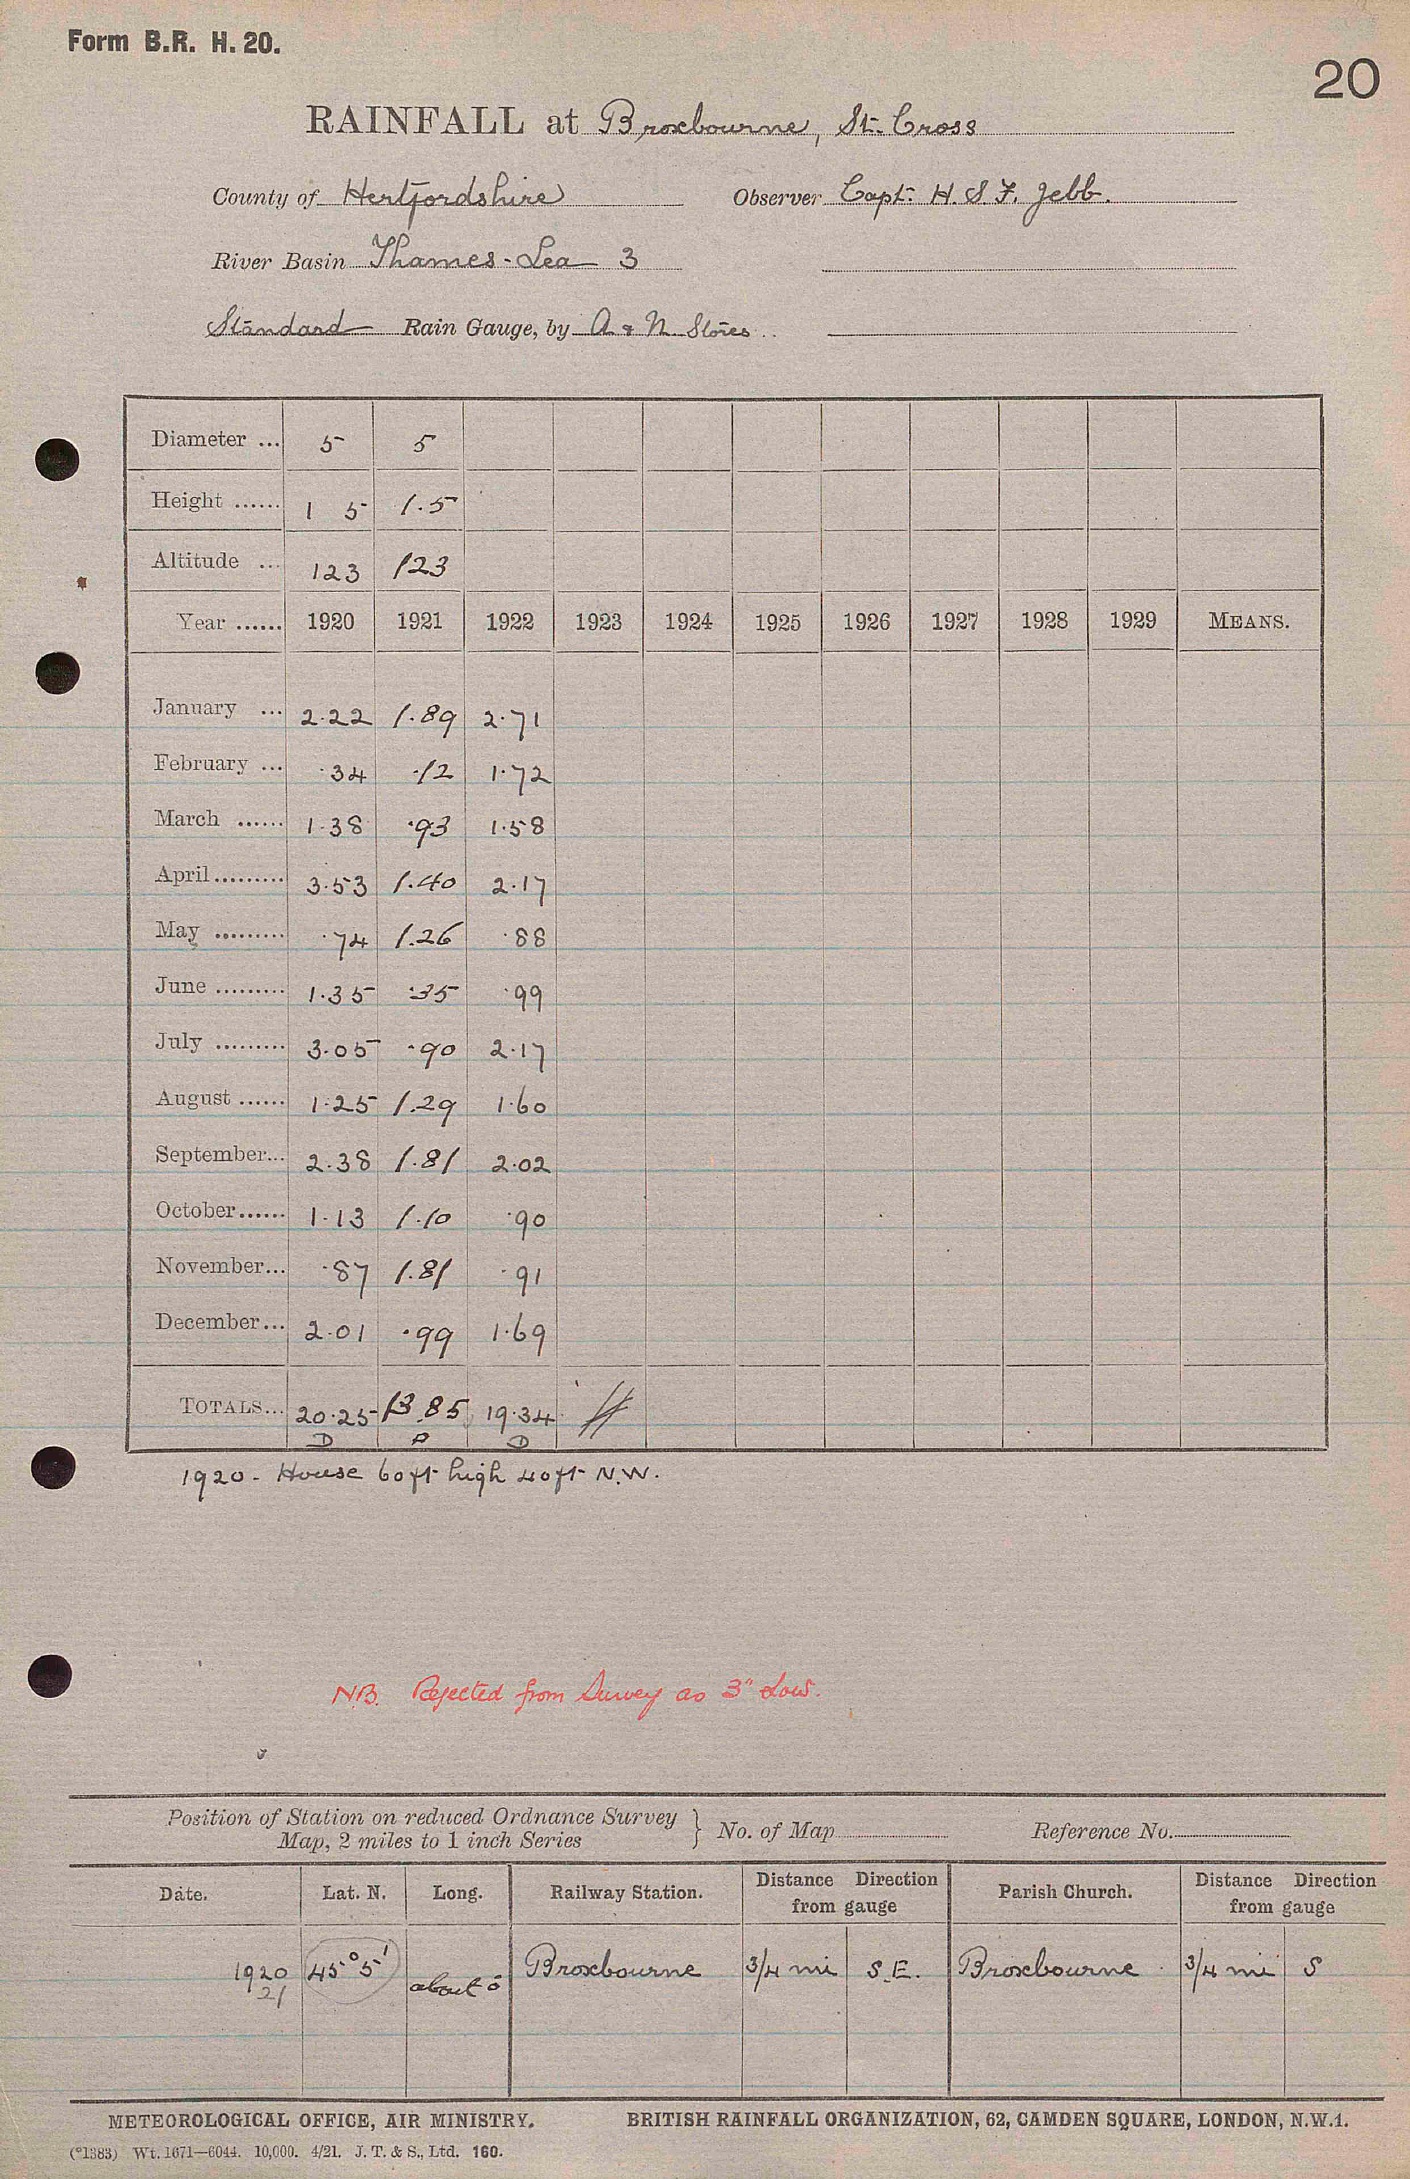 Form B.R. H. 20.
20
RAINFALL at Broxbourne, St. Cross
County of Hertfordshire Observer Capt. H. S. F. Jebb.
River Basin Thames - Lea 3
Standard Rain Gauge, by A & N Stores
Diameter ... 5 5
Height ...... 1 5 1.5
Altitude ... 123 123
Year ...... 1920 1921 1922 1923 1924 1925 1926 1927 1928 1929 MEANS.
January ... 2.22 1.89 2.71
February ... .34 .12 1.72
March ...... 1.38 .93 1.58
April......... 3.53 1.40 2.17
May ......... .74 1.26 .88
June ......... 1.35 .35 .99
July ......... 3.05 .90 2.17
August ...... 1.25 1.29 1.60
September... 2.38 1.81 2.02
October...... 1.13 1.10 .90
November... .87 1.81 .91
December... 2.01 .99 1.69
TOTALS... 20.25 13.85 19.34
D D D
1920 - House 60ft high 40ft N.W.
N.B. Rejected from Survey as 3" Low.
Position of Station on reduced Ordnance Survey
Map, 2 miles to 1 inch Series } No. of Map Reference No.
Date. Lat. N. Long. Railway Station. Distance Direction from gauge Parish Church. Distance Direction from gauge
1920 45° 5' about 0 Broxbourne 3/4 mi S.E. Broxbourne 3/4 mi S
21
METEOROLOGICAL OFFICE, AIR MINISTRY. BRITISH RAINFALL ORGANIZATION, 62, CAMDEN SQUARE, LONDON, N.W.1.
(*1383) Wt. 1671—6044. 10,000. 4/21. J. T. & S., Ltd. 160.